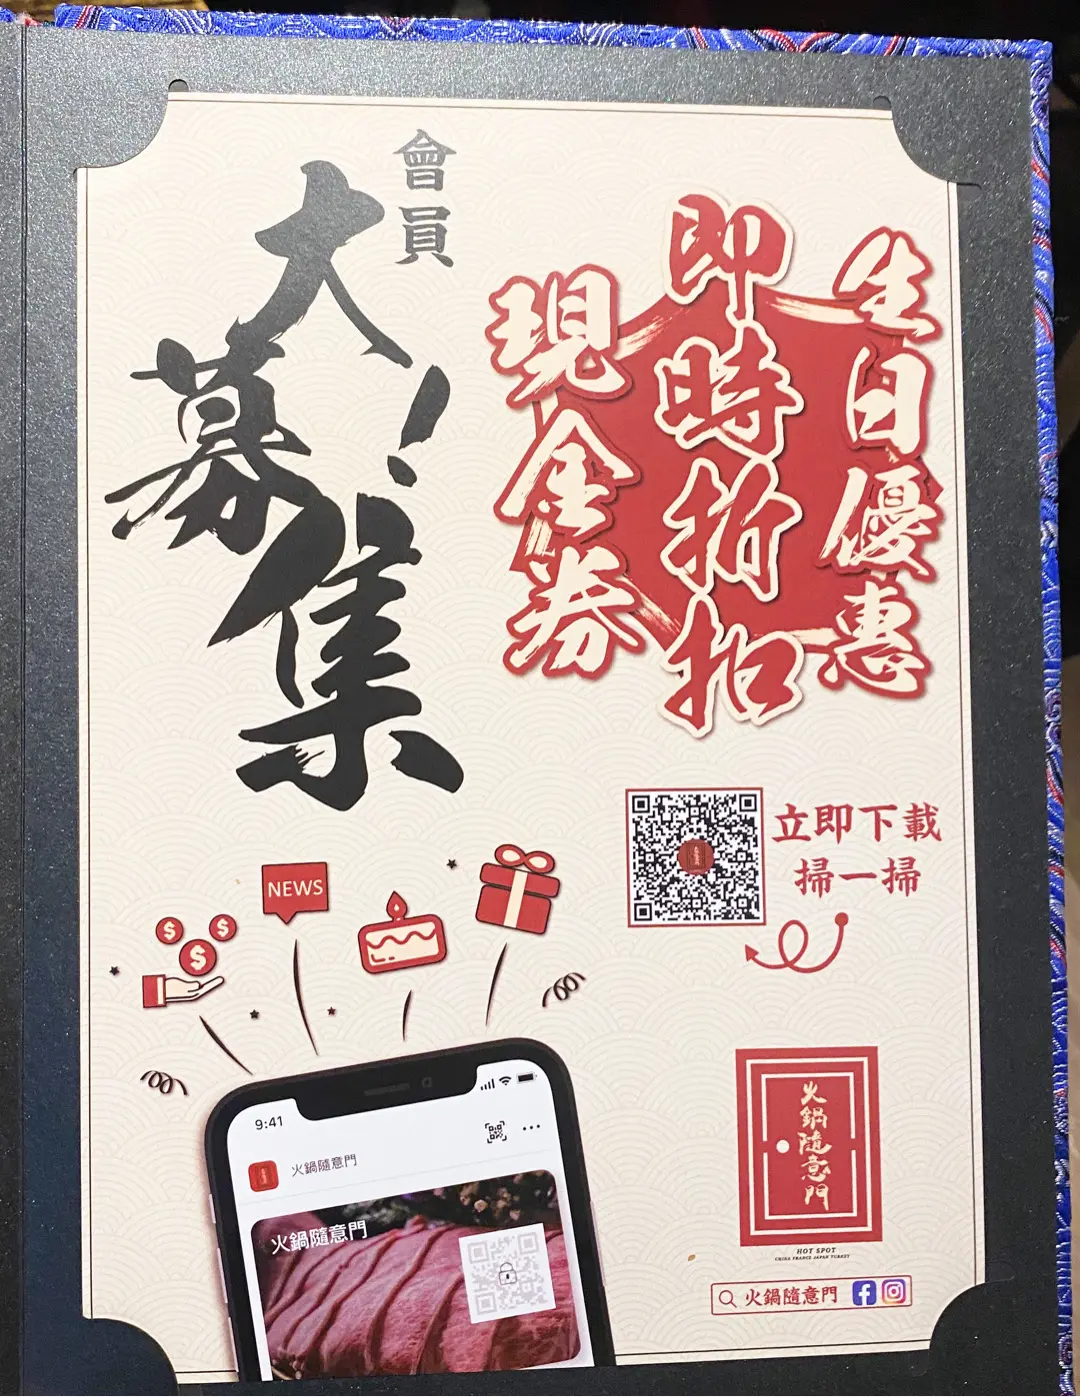 會員
大募集！
生日優惠
即時折扣
現金券
立即下載
掃一掃
NEWS
$
$
$
9:41
火鍋隨意門
火鍋隨意門
火鍋隨意門
HOT SPOT
CHINA FRANCE JAPAN TURKEY
火鍋隨意門